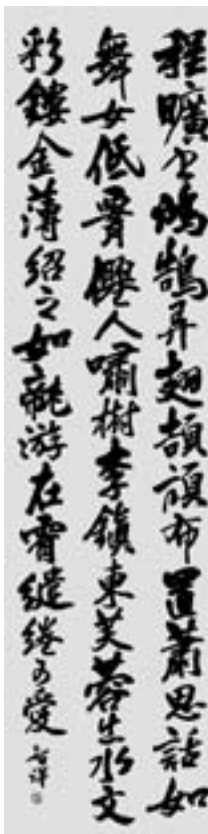 程曠鴻鵠弄翅頡頏布置蕭思話如
舞女低僊人嘯樹李鎮東芙蓉出水文
彩鏤金薄紹之如龍游在霄繾綣可愛